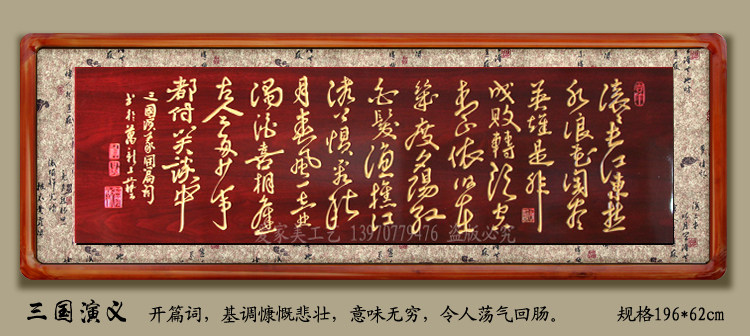 滚滚长江東逝
水浪花淘尽
英雄是非
成敗轉头空
青山依旧在
幾度夕陽红
白髮渔樵江
渚上惯看秋
月春风一壶
濁酒喜相逢
古今多少事
都付笑谈中
三國演義開篇词
爱家美工艺 13970779476 盗版必究
三国演义 开篇词，基调慷慨悲壮，意味无穷，令人荡气回肠。 规格196*62cm